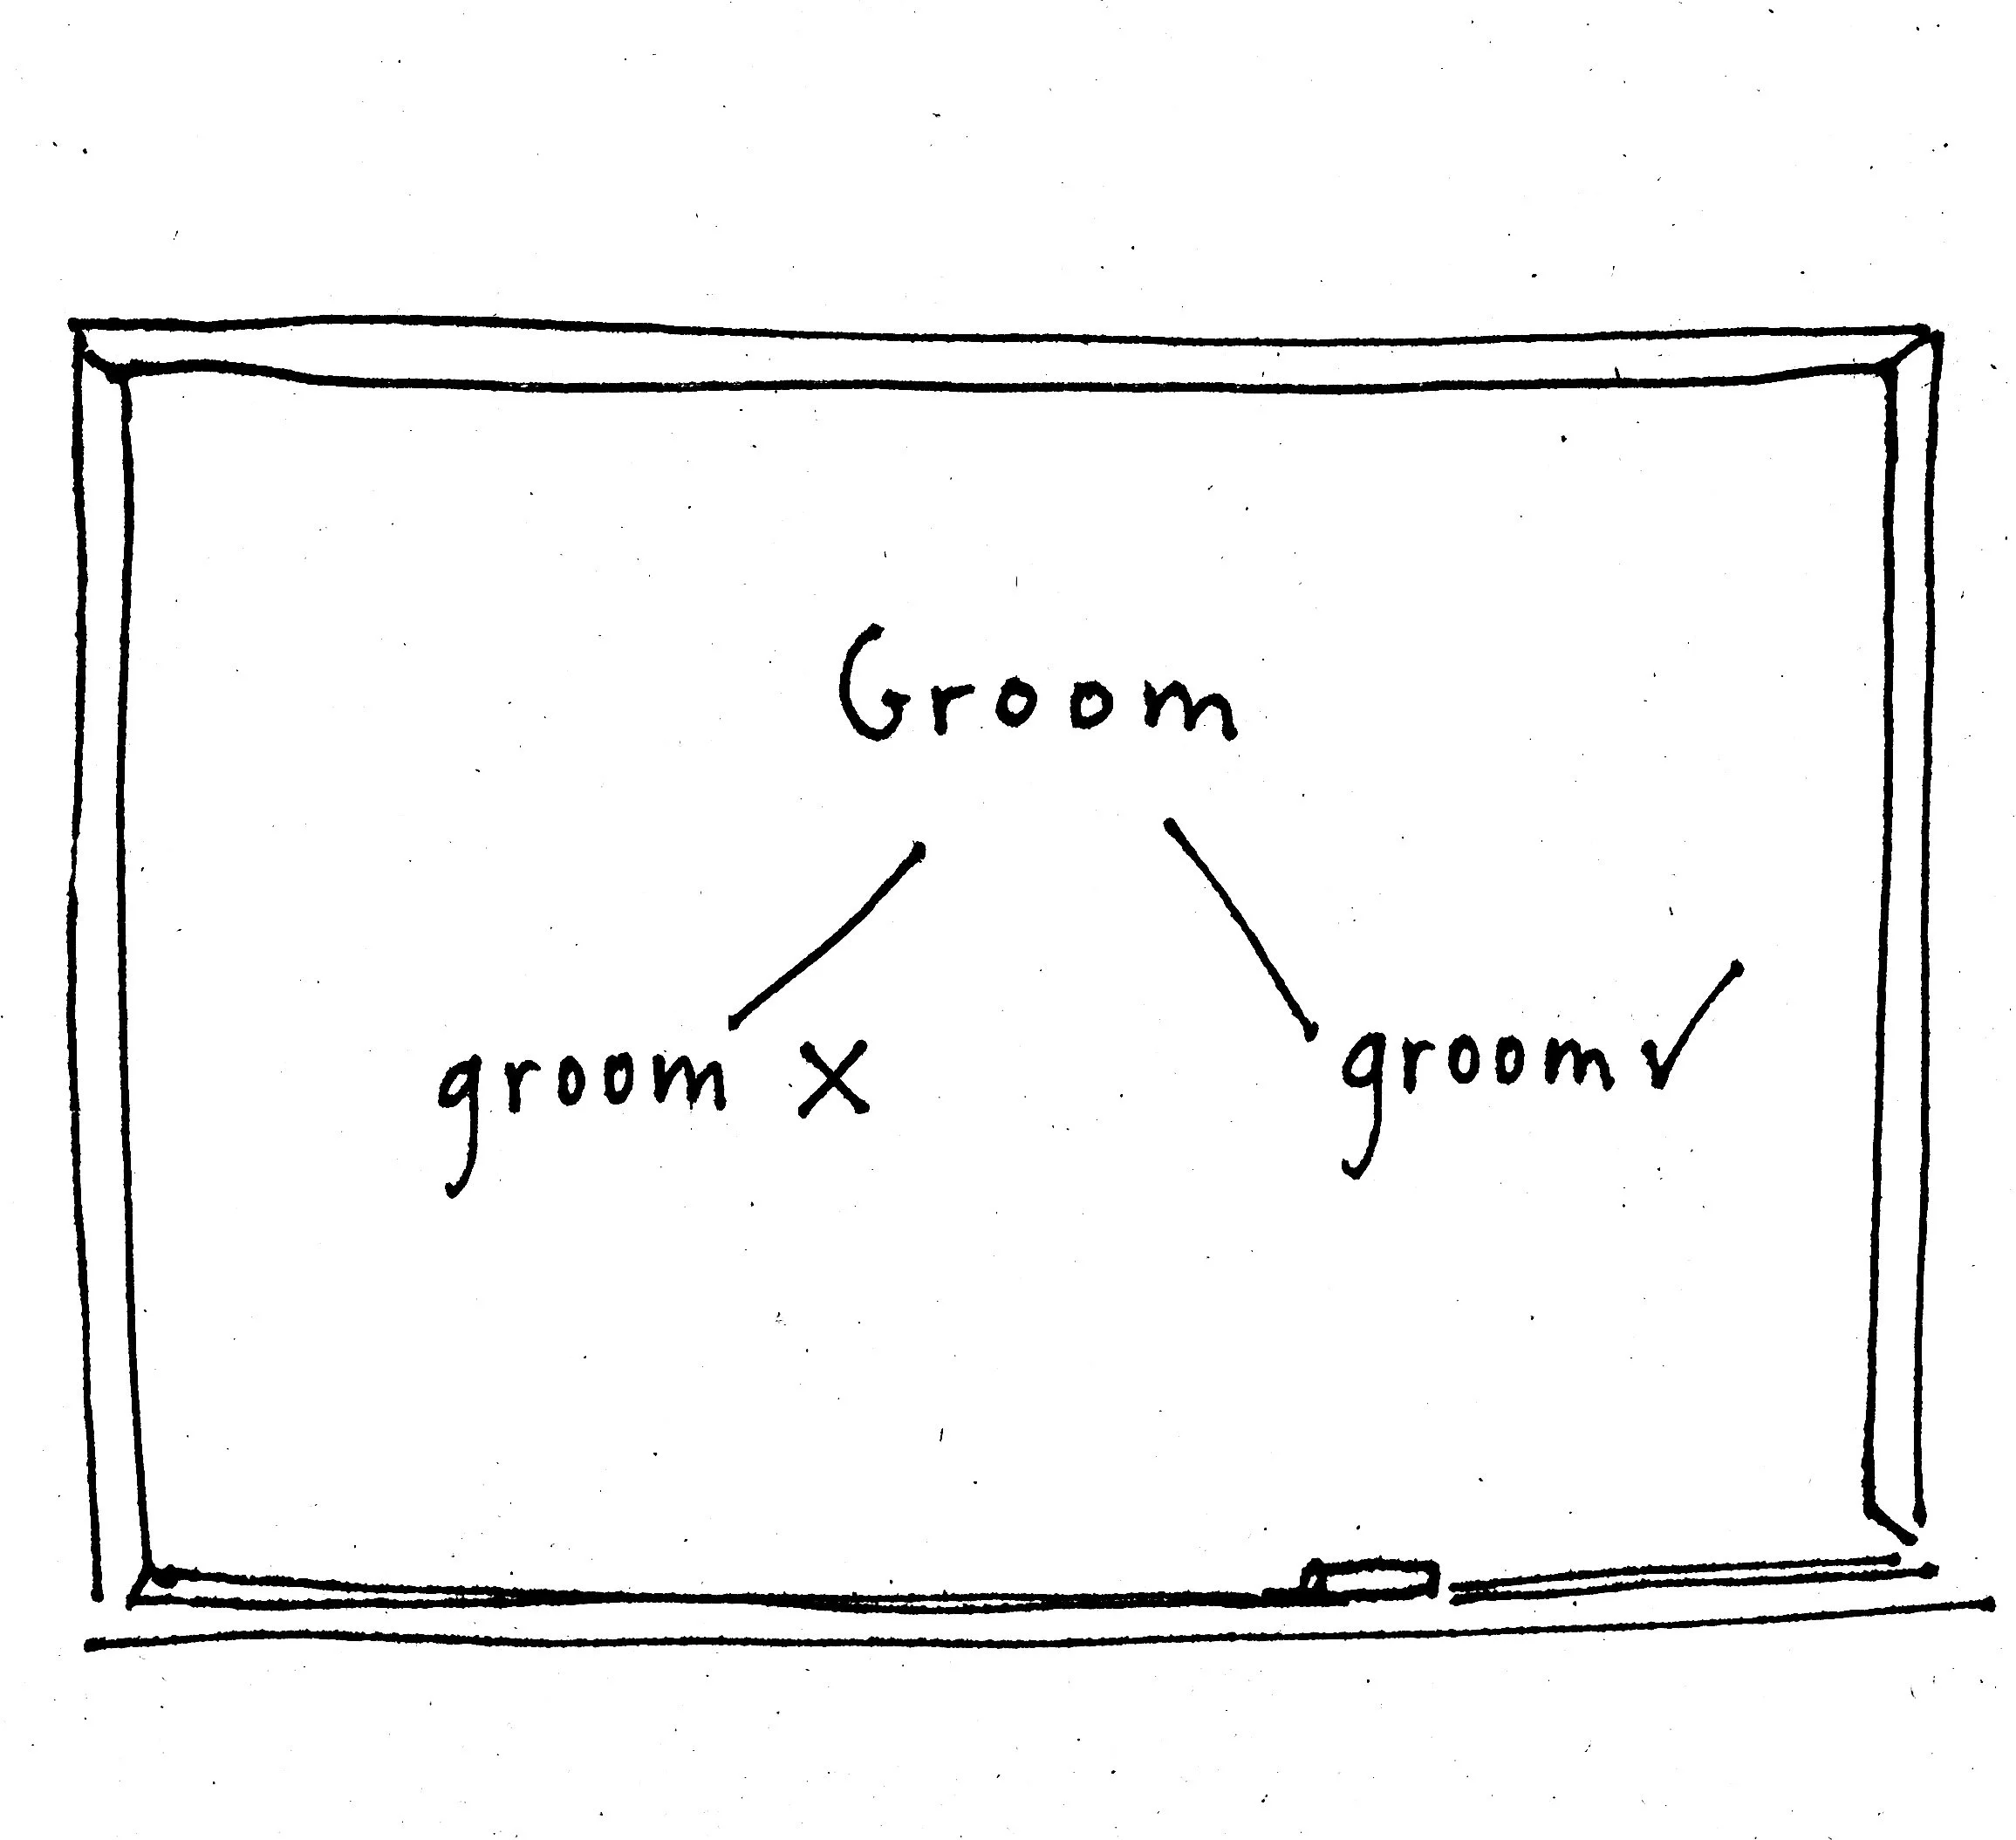 Groom
groom X groom ✓